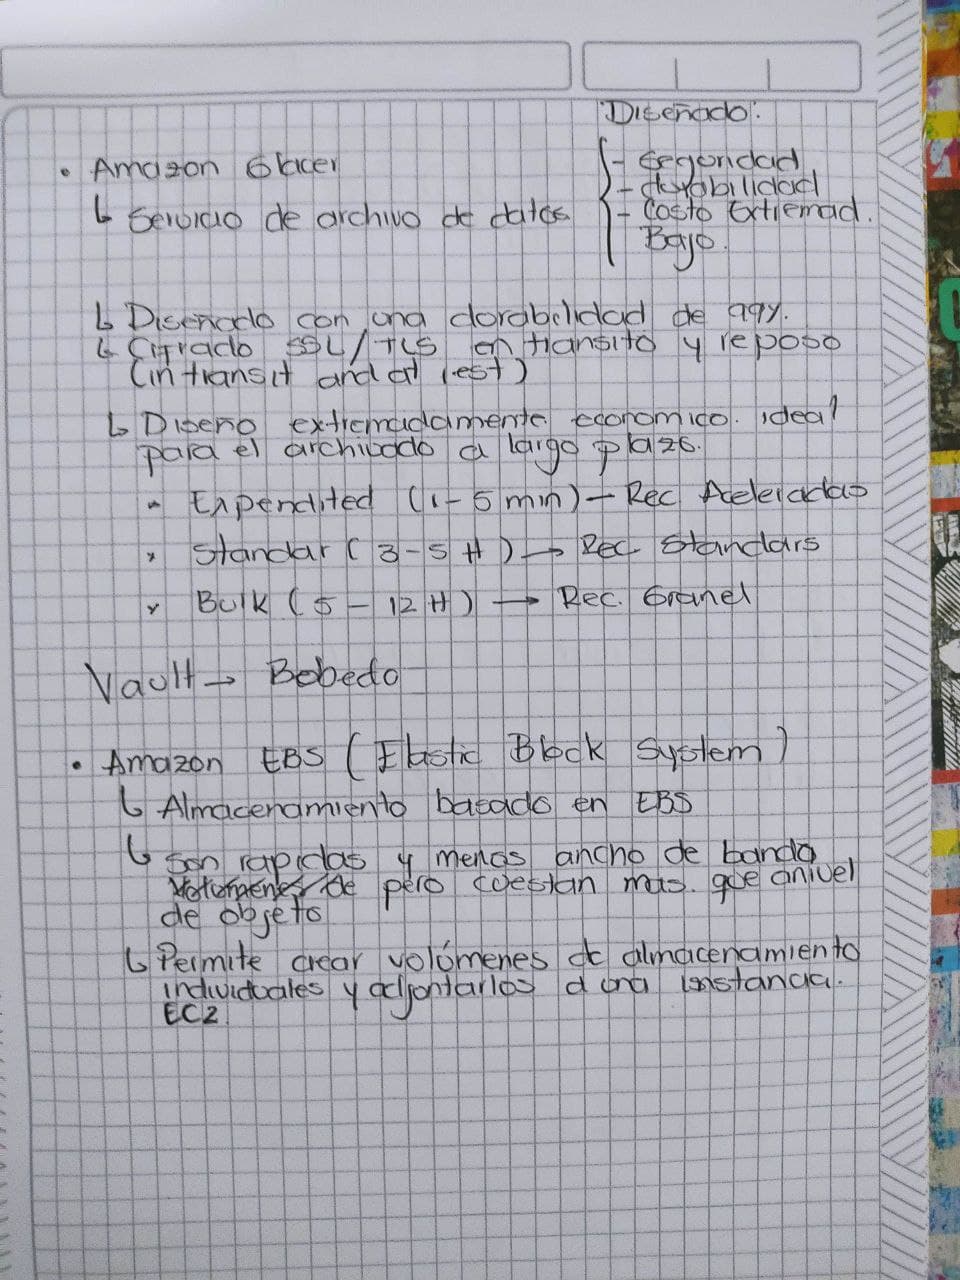 Diseñado:
• Amazon Glacer
- Seguridad
- durabilidad
↳ Servicio de archivo de datos
- Costo Extremad.
Bajo.
↳ Diseñado con una durabilidad de 99%.
↳ Cifrado SSL/TLS en transito y reposo
(in transit and at rest)
↳ Diseño extremadamente economico. ideal
para el archivado a largo plazo.
- Expendited (1-5 min) - Rec Aceleradas
* Standar (3-5 H) → Rec. Standars
* Bulk (5 - 12 H) → Rec. Granel
Vault → Bobedo
• Amazon EBS (Elastic Block System)
↳ Almacenamiento basado en EBS
↳ Son rapidas y menos ancho de banda
pero cuestan mas. que a nivel
de objeto
↳ Permite crear volúmenes de almacenamiento
individuales y adjuntarlos a una instancia.
EC2